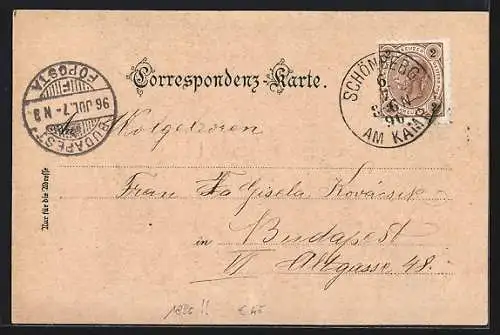 Correspondenz-Karte.
SCHÖNBERG
6
96
AM KAMP
BUDAPEST
96 JUL.7. N 8
FŐPOSTA
An Wolgeboren
Frau Gisela Kovácsik
in Budapest
VI Altgasse 48.
Nur für die Adresse
1896 !!